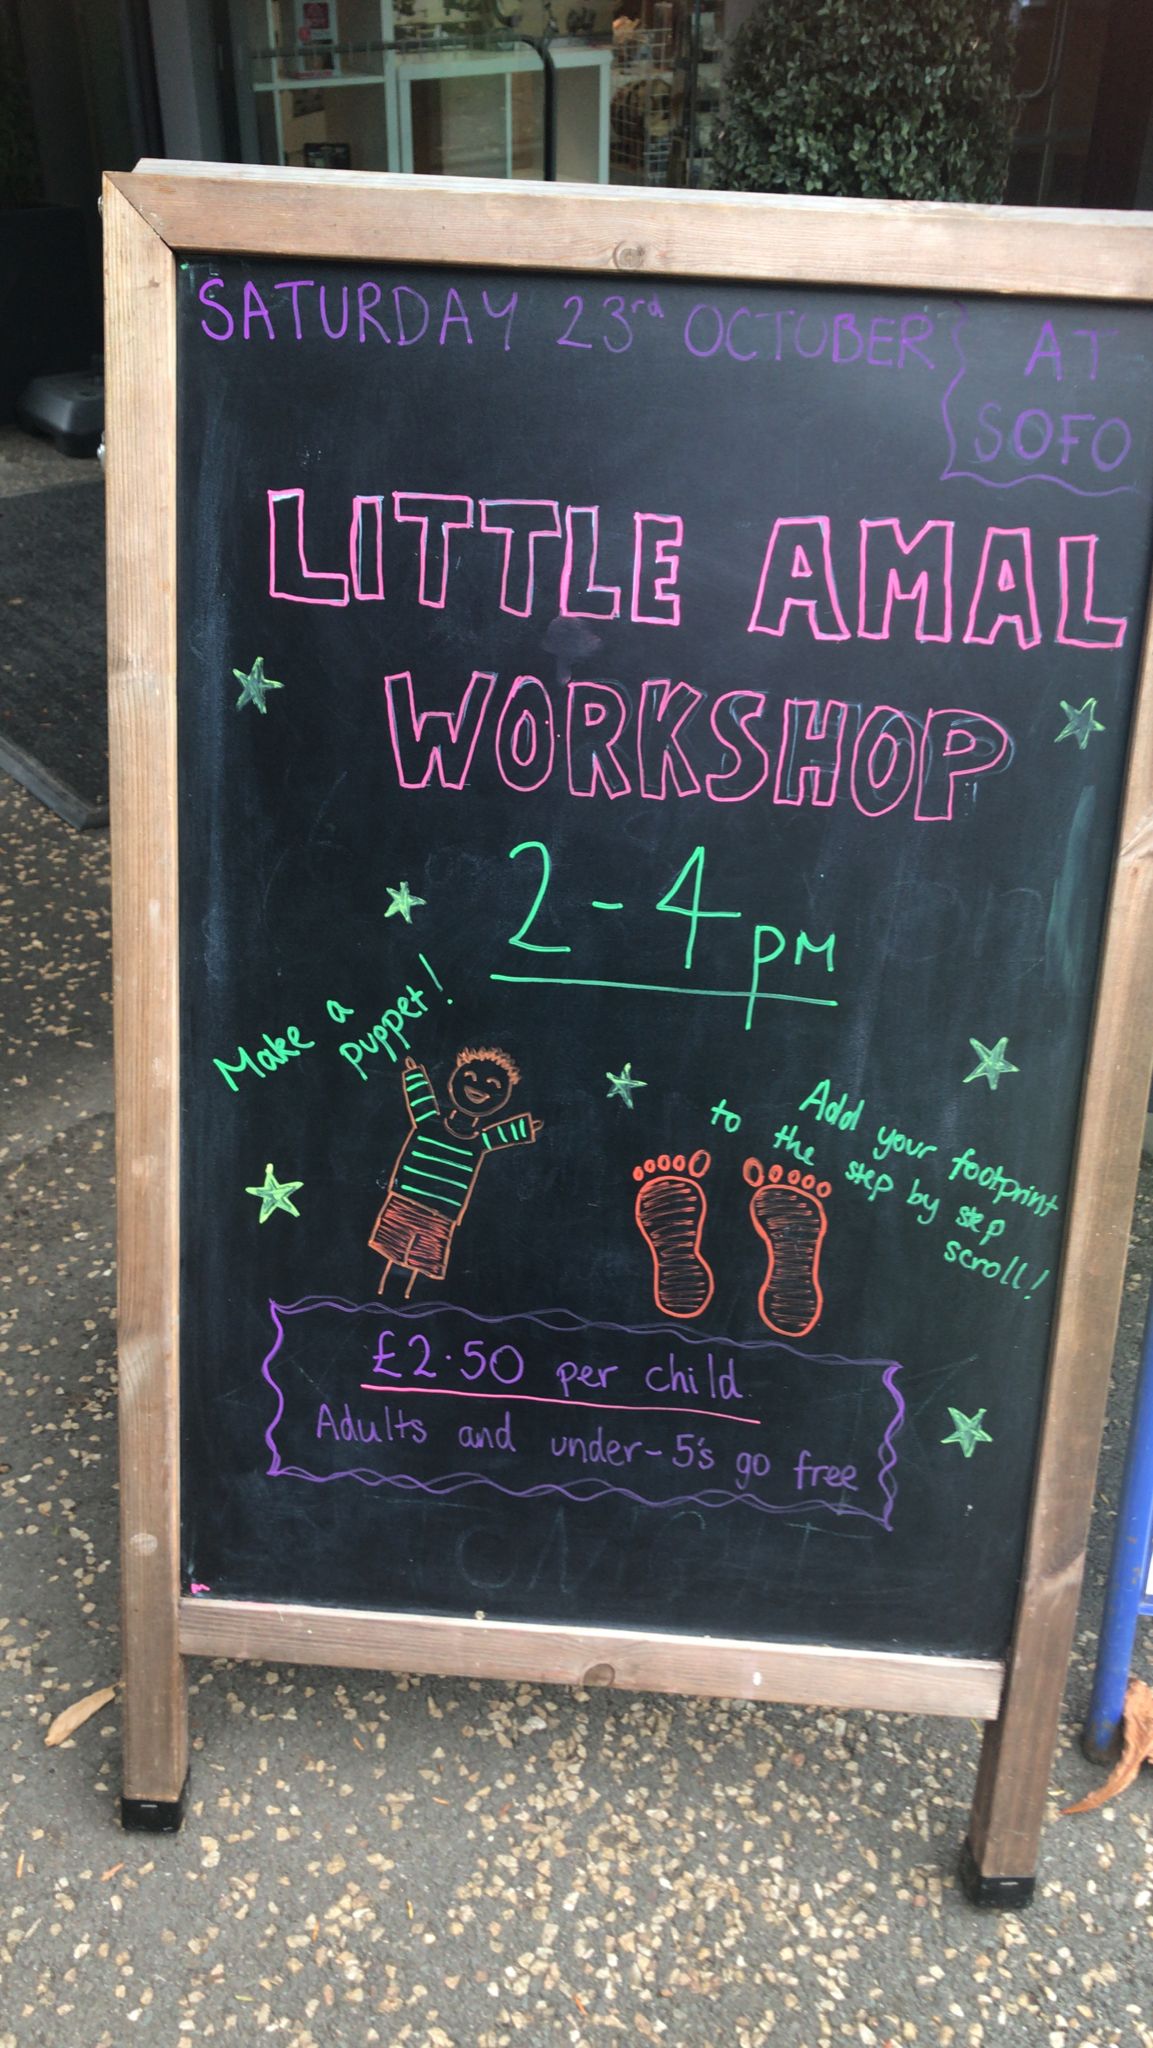 SATURDAY 23rd OCTOBER
AT
SOFO
LITTLE AMAL
WORKSHOP
2-4pm
Make a
puppet!
Add your footprint
to the step by step
scroll!
£2.50 per child
Adults and under-5's go free